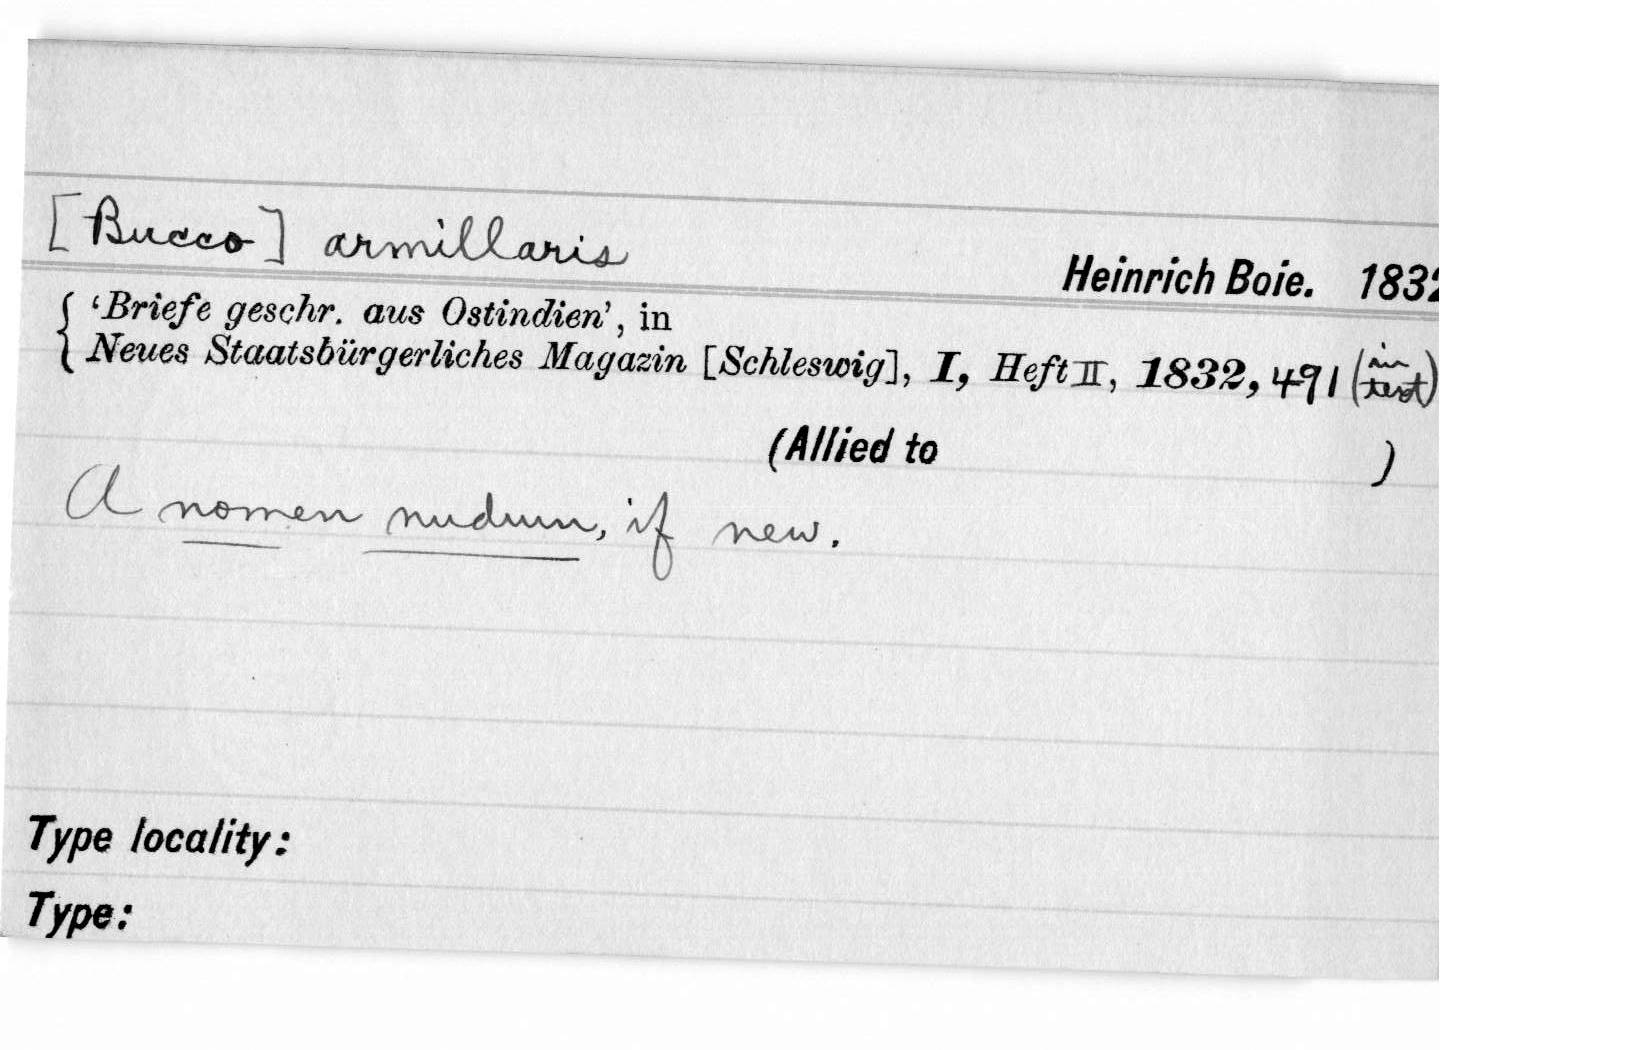 [Bucco] armillaris
Heinrich Boie. 1832
‘Briefe geschr. aus Ostindien’, in
Neues Staatsbürgerliches Magazin [Schleswig], I, Heft II, 1832, 491 (in text)
(Allied to )
A nomen nudum, if new.
Type locality:
Type: